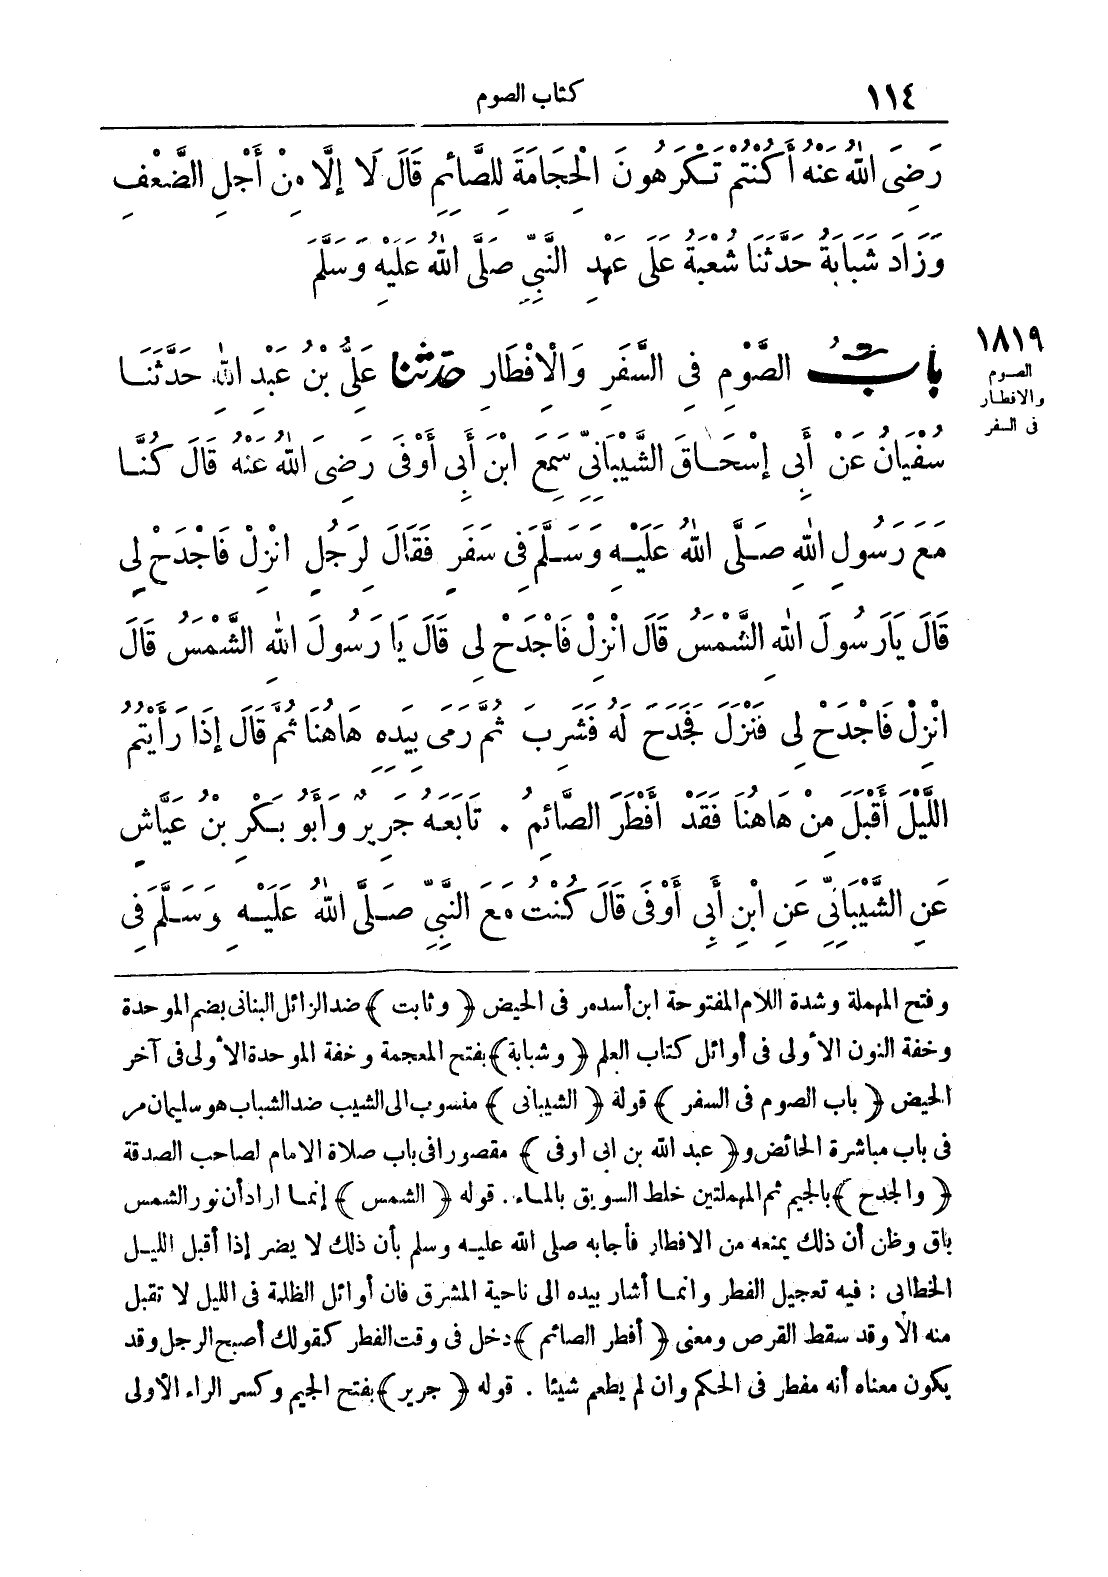 ١١٤
كتاب الصوم
رَضِىَ اللهُ عَنْهُ أَكُنْتُمْ تَكْرَهُونَ الْحِجَامَةَ لِلصَّائِمِ قَالَ لَا إِلَّا مِنْ أَجْلِ الضَّعْفِ
وَزَادَ شَبَابَةُ حَدَّثَنَا شُعْبَةُ عَلَى عَهْدِ النَّبِيِّ صَلَّى اللهُ عَلَيْهِ وَسَلَّمَ
بابُ الصَّوْمِ فِى السَّفَرِ وَالْاِفْطَارِ حَدَّثَنَا عَلِىُّ بْنُ عَبْدِ اللهِ حَدَّثَنَا
١٨١٩
الصوم
والافطار
فى السفر
سُفْيَانُ عَنْ أَبِى إِسْحَاقَ الشَّيْبَانِىِّ سَمِعَ ابْنَ أَبِى أَوْفَى رَضِىَ اللهُ عَنْهُ قَالَ كُنَّا
مَعَ رَسُولِ اللهِ صَلَّى اللهُ عَلَيْهِ وَسَلَّمَ فِى سَفَرٍ فَقَالَ لِرَجُلٍ انْزِلْ فَاجْدَحْ لِى
قَالَ يَارَسُولَ اللهِ الشَّمْسُ قَالَ انْزِلْ فَاجْدَحْ لِى قَالَ يَا رَسُولَ اللهِ الشَّمْسُ قَالَ
انْزِلْ فَاجْدَحْ لِى فَنَزَلَ فَجَدَحَ لَهُ فَشَرِبَ ثُمَّ رَمَى بِيَدِهِ هَاهُنَا ثُمَّ قَالَ إِذَا رَأَيْتُمُ
اللَّيْلَ أَقْبَلَ مِنْ هَاهُنَا فَقَدْ أَفْطَرَ الصَّائِمُ . تَابَعَهُ جَرِيرٌ وَأَبُو بَكْرِ بْنُ عَيَّاشٍ
عَنِ الشَّيْبَانِىِّ عَنِ ابْنِ أَبِى أَوْفَى قَالَ كُنْتُ مَعَ النَّبِيِّ صَلَّى اللهُ عَلَيْهِ وَسَلَّمَ فِى
وفتح المهملة وشدة اللام المفتوحة ابن أسد مر فى الحيض ﴿وثابت﴾ ضد الزائل البنانى بضم الموحدة
وخفة النون الأولى فى أوائل كتاب العلم ﴿وشبابة﴾ بفتح المعجمة وخفة الموحدة الأولى فى آخر
الحيض ﴿باب الصوم فى السفر﴾ قوله ﴿الشيبانى﴾ منسوب الى الشيب ضد الشباب هو سليمان مر
فى باب مباشرة الحائض و﴿عبد الله بن ابى اوفى﴾ مقصورا فى باب صلاة الامام لصاحب الصدقة
﴿والجدح﴾ بالجيم ثم المهملتين خلط السويق بالماء . قوله ﴿الشمس﴾ إنما اراد أن نور الشمس
باق وظن أن ذلك يمنعه من الافطار فأجابه صلى الله عليه وسلم بأن ذلك لا يضر إذا أقبل الليل
الخطابى : فيه تعجيل الفطر وانما أشار بيده الى ناحية المشرق فان أوائل الظلمة فى الليل لا تقبل
منه الا وقد سقط القرص ومعنى ﴿أفطر الصائم﴾ دخل فى وقت الفطر كقولك أصبح الرجل وقد
يكون معناه أنه مفطر فى الحكم وان لم يطعم شيئا . قوله ﴿جرير﴾ بفتح الجيم وكسر الراء الأولى